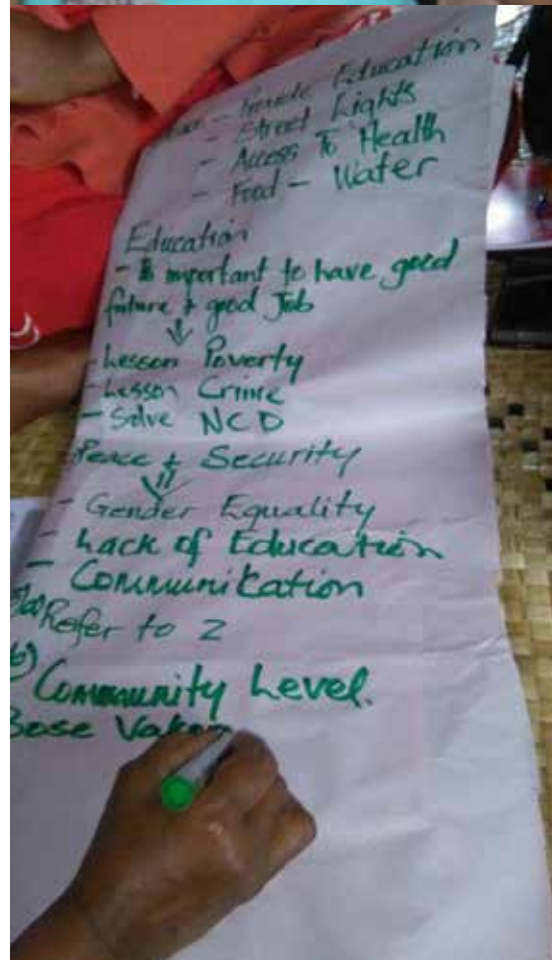 - Provide Education
- Street Lights
- Access To Health
- Food - Water
Education
- Is important to have good
future & good Job
- Lesson Poverty
- Lesson Crime
- Solve NCD
Peace & Security
- Gender Equality
- Lack of Education
- Communikation
Refer to 2
b) Community Level.
Bose